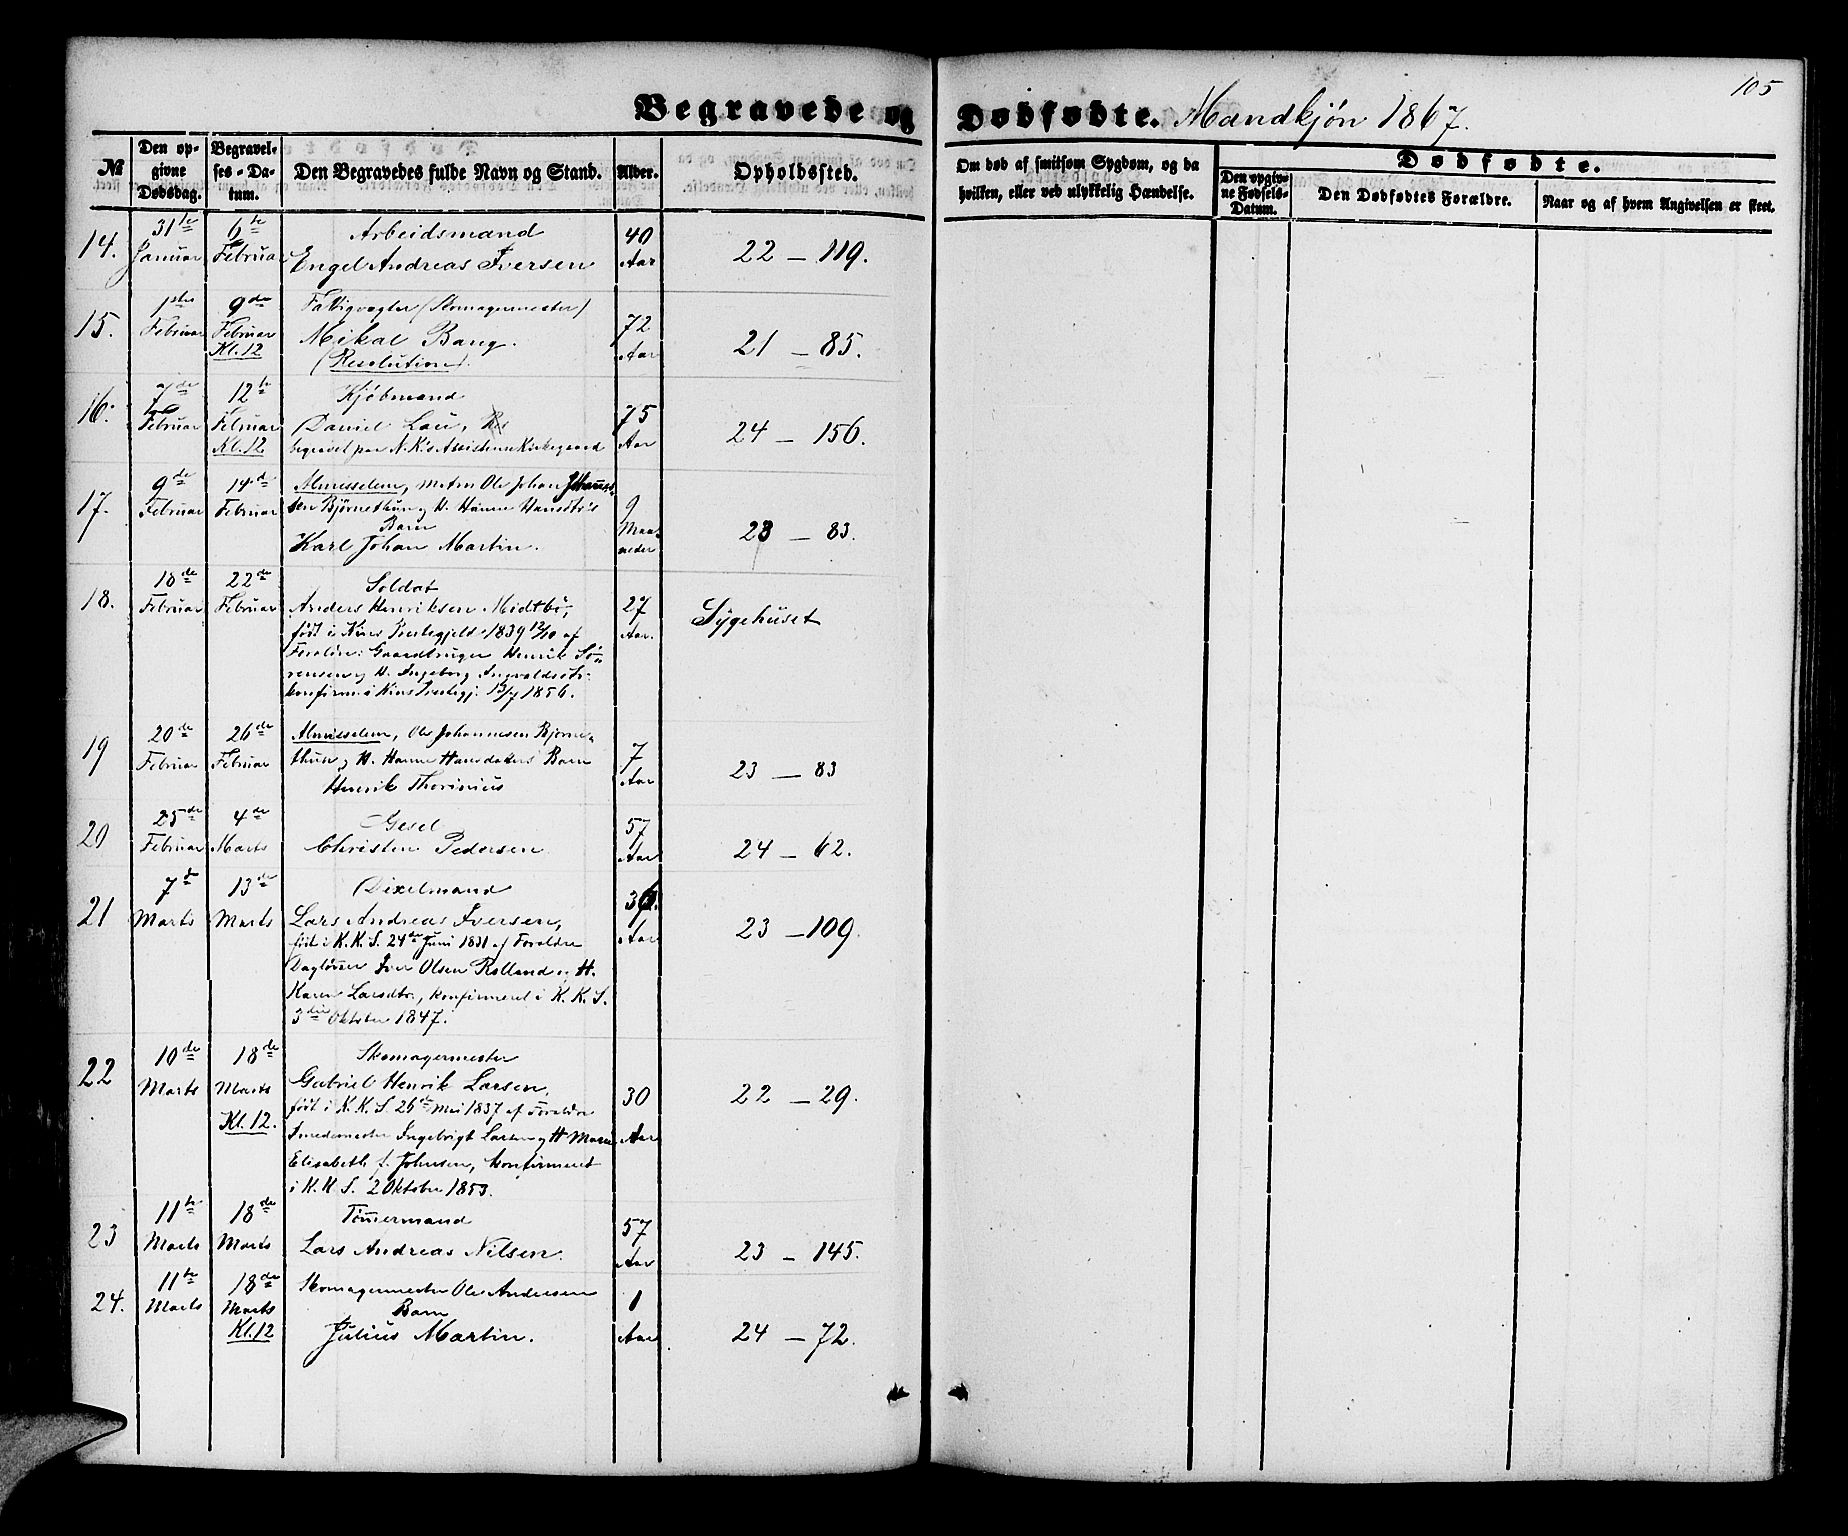 105
Begravede og Dødfødte. Mandkjøn 1867.
№
Den opgivne Dødsdag.
Begravelses-Datum.
Den Begravedes fulde Navn og Stand.
Alder.
Opholdssted.
Om død af smitsom Sygdom, og da hvilken, eller ved ulykkelig Hændelse.
Dødfødte.
Den opgivne Fødsels-Datum.
Den Dødfødtes Forældre.
Naar og af hvem Angivelsen er skeet.
14. 31te Januar 6te Februar Arbeidsmand
Engel Andreas Iversen 40 Aar 22 – 119.
15. 1ste Februar 9de Februar Kl. 12 Fattigvogter (Skomagermester)
Mikal Bang.
(Resolution). 72 Aar 21 – 85.
16. 7de Februar 12te Februar Kl. 12 Kjøbmand
Daniel Lau,
begravet paa N. K's Assistence Kirkegaard 75 Aar 24 – 156.
17. 9de Februar 14de Februar Almisselem, Ole Johan
sen Bjørnethun og H. Hanne Hansdtr's
Barn
Karl Johan Martin. 9 Maaneder 23 – 83.
18. 18de Februar 22de Februar Soldat
Anders Henriksen Midtbø,
født i Kins Prestegjeld 1839 12/10 af
Forældre: Gaardbruger Henrik Sø-
rensen og H. Ingeborg
konfirm. i Kins Prestegj. 13/7 1856. 27 Aar. Sygehuset
19 20de Februar 26de Februar Almisselem, Ole Johannesen Bjørne-
thun og H. Hanne Hansdatters Barn
Henrik Thorinius 7 Aar 23 – 83
20 25de Februar 4de Marts Gesel
Christen Pedersen 57 Aar 24 – 62.
21 7de Marts 13de Marts Dixelmand
Lars Andreas Iversen,
født i K. K. S. 24de Juni 1831 af Forældre
Dagløner Iver Olsen Rolland og H.
Karen Larsdtr., konfirmeret i K. K. S.
3die Oktober 1847. 36 Aar 23 – 109.
22 10de Marts 18de Marts Kl. 12. Skomagermester
Gabriel Henrik Larsen,
født i K. K. S. 26de Mai 1837 af Forældre
Smedemester Ingebrigt Larsen og H. Maren
Elisabeth f. Johnsen, konfirmeret
i K. K. S. 2 Oktober 1853. 30 Aar 22 – 29.
23 11te Marts 18de Marts Tømermand
Lars Andreas Nilsen. 57 Aar 23 – 145.
24. 11te Marts 18de Marts Kl. 12 Skomagermester Ole Andersens
Barn
Julius Martin. 1 Aar 24 – 72.